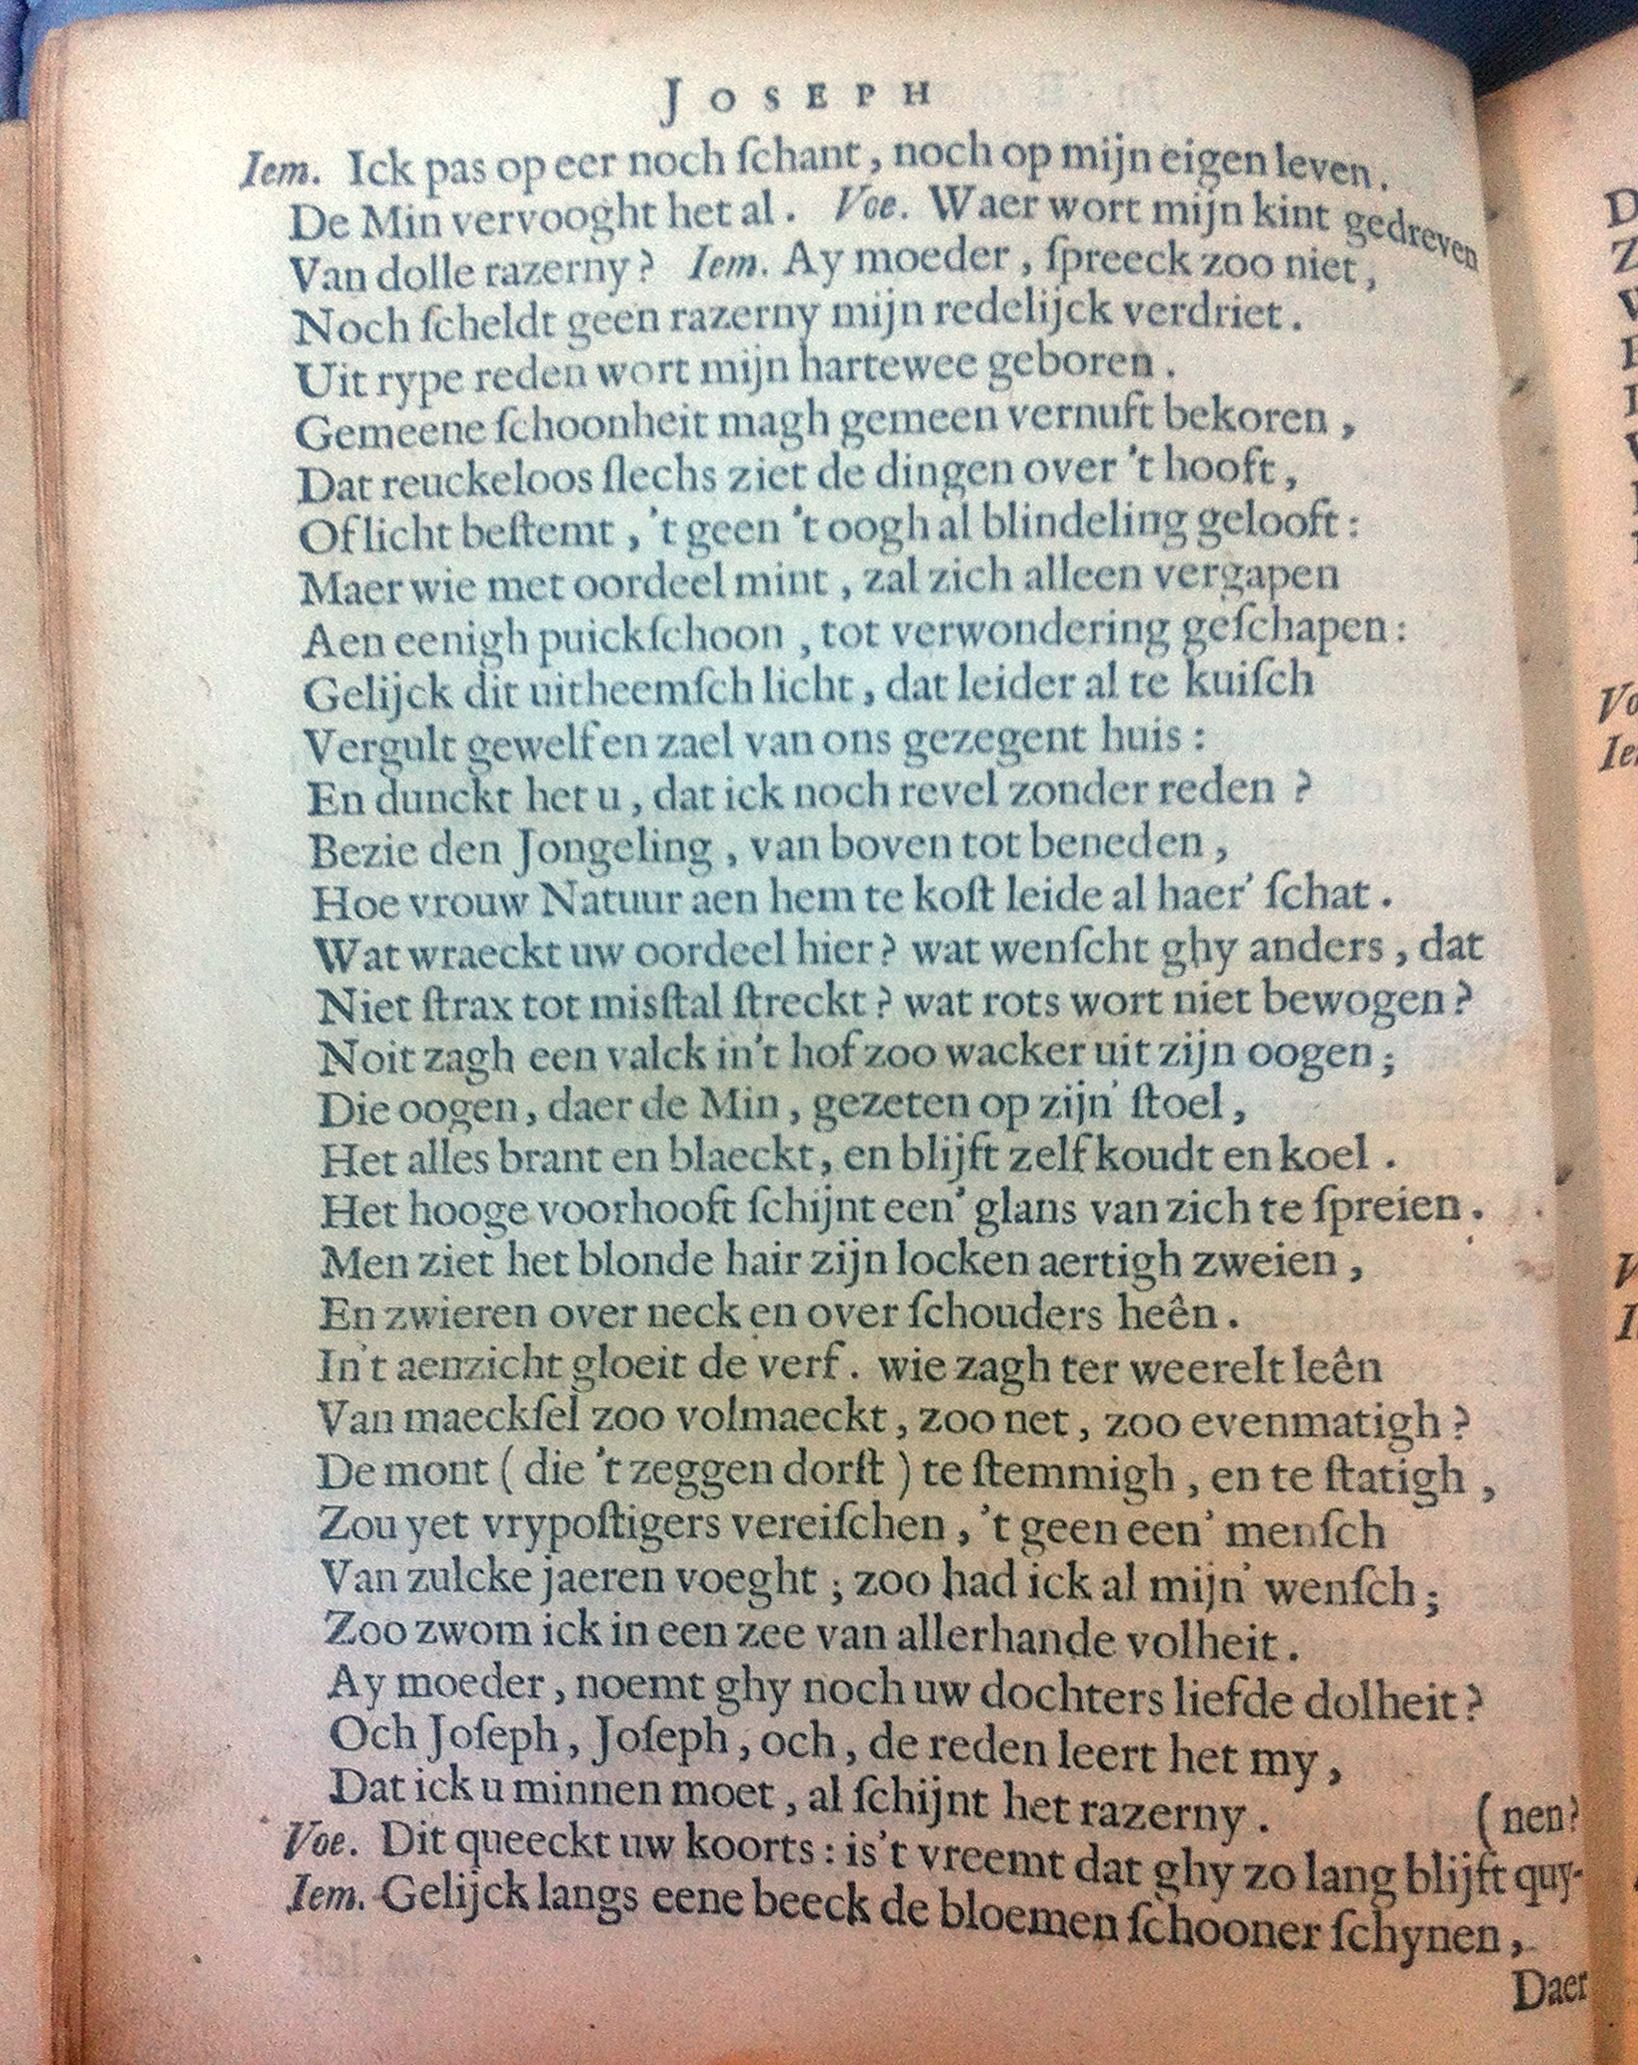 JOSEPH
Iem. Ick pas op eer noch ſchant, noch op mijn eigen leven.
De Min vervooght het al. Voe. Waer wort mijn kint gedreven
Van dolle razerny? Iem. Ay moeder, ſpreeck zoo niet,
Noch ſcheldt geen razerny mijn redelijck verdriet.
Uit rype reden wort mijn hartewee geboren.
Gemeene ſchoonheit magh gemeen vernuft bekoren,
Dat reuckeloos ſlechs ziet de dingen over 't hooft,
Of licht beſtemt, 't geen 't oogh al blindeling gelooft:
Maer wie met oordeel mint, zal zich alleen vergapen
Aen eenigh puickſchoon, tot verwondering geſchapen:
Gelijck dit uitheemſch licht, dat leider al te kuiſch
Vergult gewelf en zael van ons gezegent huis:
En dunckt het u, dat ick noch revel zonder reden?
Bezie den Jongeling, van boven tot beneden,
Hoe vrouw Natuur aen hem te koſt leide al haer' ſchat.
Wat wraeckt uw oordeel hier? wat wenſcht ghy anders, dat
Niet ſtrax tot misſtal ſtreckt? wat rots wort niet bewogen?
Noit zagh een valck in't hof zoo wacker uit zijn oogen;
Die oogen, daer de Min, gezeten op zijn' ſtoel,
Het alles brant en blaeckt, en blijft zelf koudt en koel.
Het hooge voorhooft ſchijnt een' glans van zich te ſpreien.
Men ziet het blonde hair zijn locken aertigh zweien,
En zwieren over neck en over ſchouders heên.
In't aenzicht gloeit de verf. wie zagh ter weerelt leên
Van maeckſel zoo volmaeckt, zoo net, zoo evenmatigh?
De mont (die 't zeggen dorſt) te ſtemmigh, en te ſtatigh,
Zou yet vrypoſtigers vereiſchen, 't geen een' menſch
Van zulcke jaeren voeght; zoo had ick al mijn' wenſch;
Zoo zwom ick in een zee van allerhande volheit.
Ay moeder, noemt ghy noch uw dochters liefde dolheit?
Och Joſeph, Joſeph, och, de reden leert het my,
Dat ick u minnen moet, al ſchijnt het razerny. (nen?
Voe. Dit queeckt uw koorts: is't vreemt dat ghy zo lang blijft quy-
Iem. Gelijck langs eene beeck de bloemen ſchooner ſchynen,
Daer